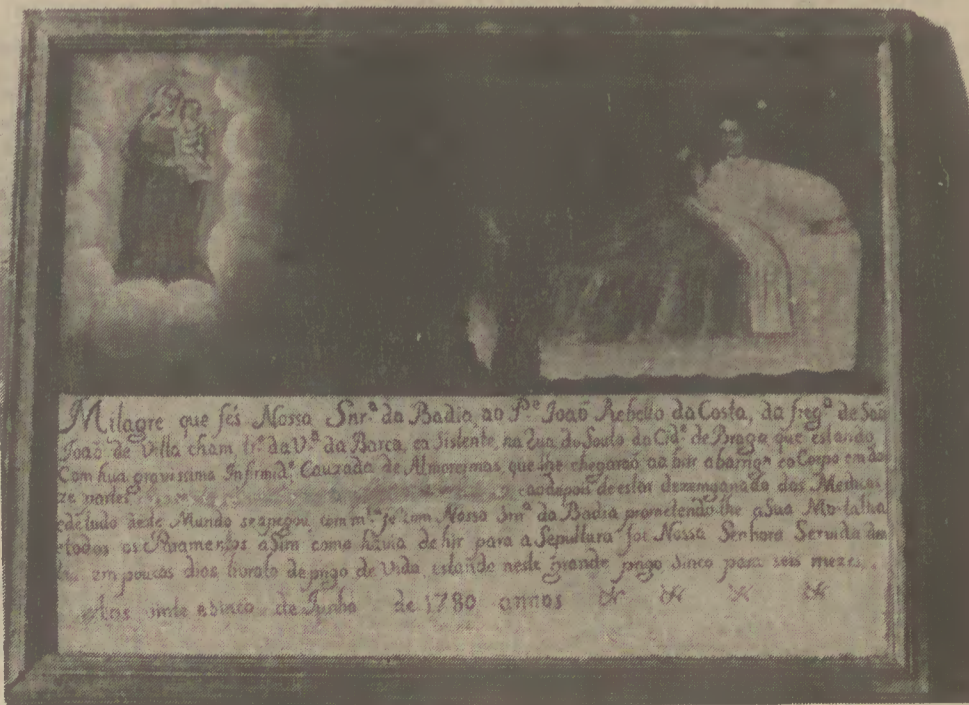 Milagre que fés Nossa Snr.ª da Badia, ao P.ᵉ Joaõ Rebello da Costa, da freg.ª de Saõ
Joaõ de Villa cham, tr.º da V.ª da Barca, ea Sistente, na Rua do Souto da Cid.ᵉ de Braga que estando
Com hua gravissima Infirmid.ᵉ Cauzada de Almoreimas, que lhe chegaraõ aa brir abarriga eoCorpo em do
ze partes eaodepois deestar dezemganado dos Medicos
edetudo deste Mundo seapegou, com m.ᵗᵃ fé com Nossa Snr.ª da Badia prometendo-lhe aSua Mortalha
etodos os Paramentos aSim como havia de hir para a Sepultura foi Nossa Senhora Servida
em poucos dias livralo de prigo de Vida estando neste grande prigo Sinco para seis mezes.
Aos vinte esinco de Junho de 1780 annos